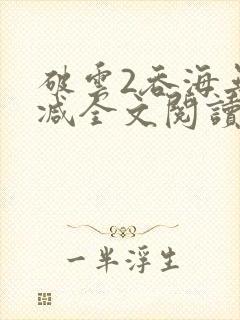 破雲2吞海
減全文閱讀
一半浮生